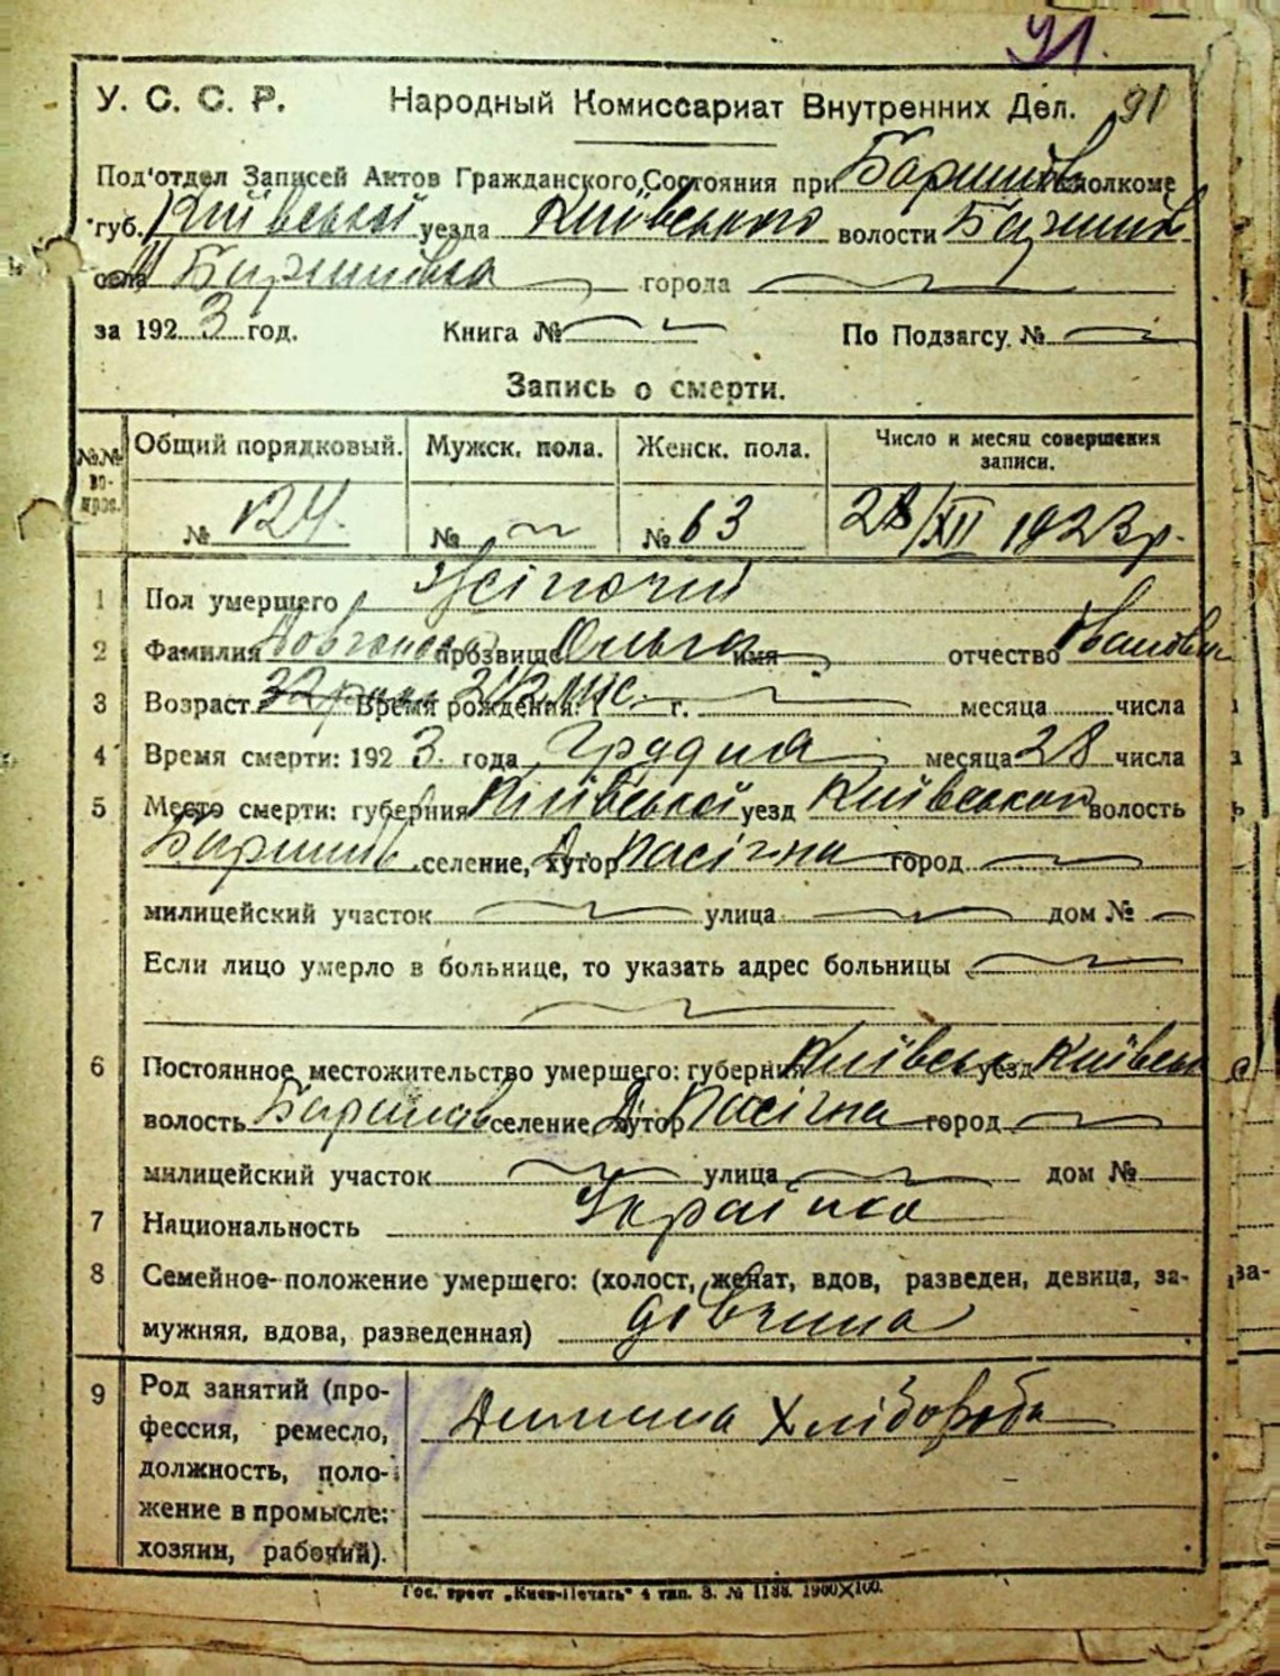 91.
У. С. С. Р. Народный Комиссариат Внутренних Дел. 91
Под'отдел Записей Актов Гражданского Состояния при Баришів исполкоме
губ. Київської уезда Київського волости Баришів
села Баришівка города
за 1923 год. Книга № По Подзагсу №
Запись о смерти.
№№ вопрос. Общий порядковый. Мужск. пола. Женск. пола. Число и месяц совершения записи.
№ 124. № № 63 28/XII 1923 р.
1 Пол умершего Жіночий
2 Фамилия прозвище Ольга имя отчество Ивановн
3 Возраст Время рождения: 1 г. месяца числа
4 Время смерти: 1923. года Грудня месяца 28 числа
5 Место смерти: губерния Київської уезд Київського волость
Баришів селение, хутор Пасічна город
милицейский участок улица дом №
Если лицо умерло в больнице, то указать адрес больницы
6 Постоянное местожительство умершего: губерния Київськ уезд Київськ
волость Баришів селение хутор Пасічна город
милицейский участок улица дом №
7 Национальность Українка
8 Семейное положение умершего: (холост, женат, вдов, разведен, девица, за-
мужняя, вдова, разведенная) дівчина
9 Род занятий (про-
фессия, ремесло,
должность, поло-
жение в промысле:
хозяин, рабочий).
Дитина Хлібороба
Гос. трест „Киев-Печать“ 4 тип. З. № 1138. 1900X100.